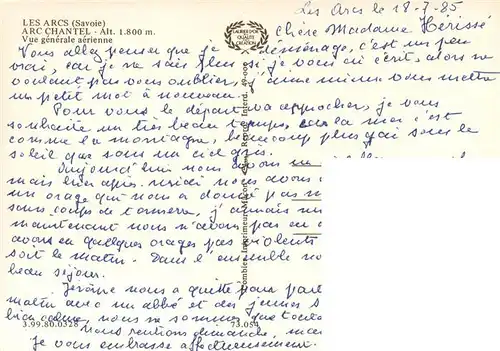 LES ARCS (Savoie)
ARC CHANTEL - Alt. 1.800 m.
Vue générale aérienne
LAURIER D'OR
QUALITÉ
CREATION
Les Arcs le 18-7-85
Chère Madame Hérissé
Vous allez penser que je déménage, c'est un peu
vrai, car je ne sais plus si je vous ai écrit, alors ne
voulant pas vous oublier, j'aime mieux vous mettre
un petit mot à nouveau.
Pour vous le départ va approcher, je vous
souhaite un très beau temps, la mer c'est
comme la montagne, beaucoup plus gai sous le
soleil que sous un ciel gris.
Aujourd'hui nous avons un
mais hier après-midi nous avons
un orage que nous a donné pas
sours coups de tonnerre, j'aimais
maintenant nous n'avons pas eu
avons eu quelques orages pas violents
soit le matin. Dans l'ensemble
beau séjour.
Jérôme nous a quitté pour
matin avec un abbé et des jeunes
bien calme, nous ne sommes que
Nous rentrons dimanche,
Je vous embrasse affectueusement.
3.99.80.0328
73.054
Combier Imprimeur Mâcon
Interd. 49-000